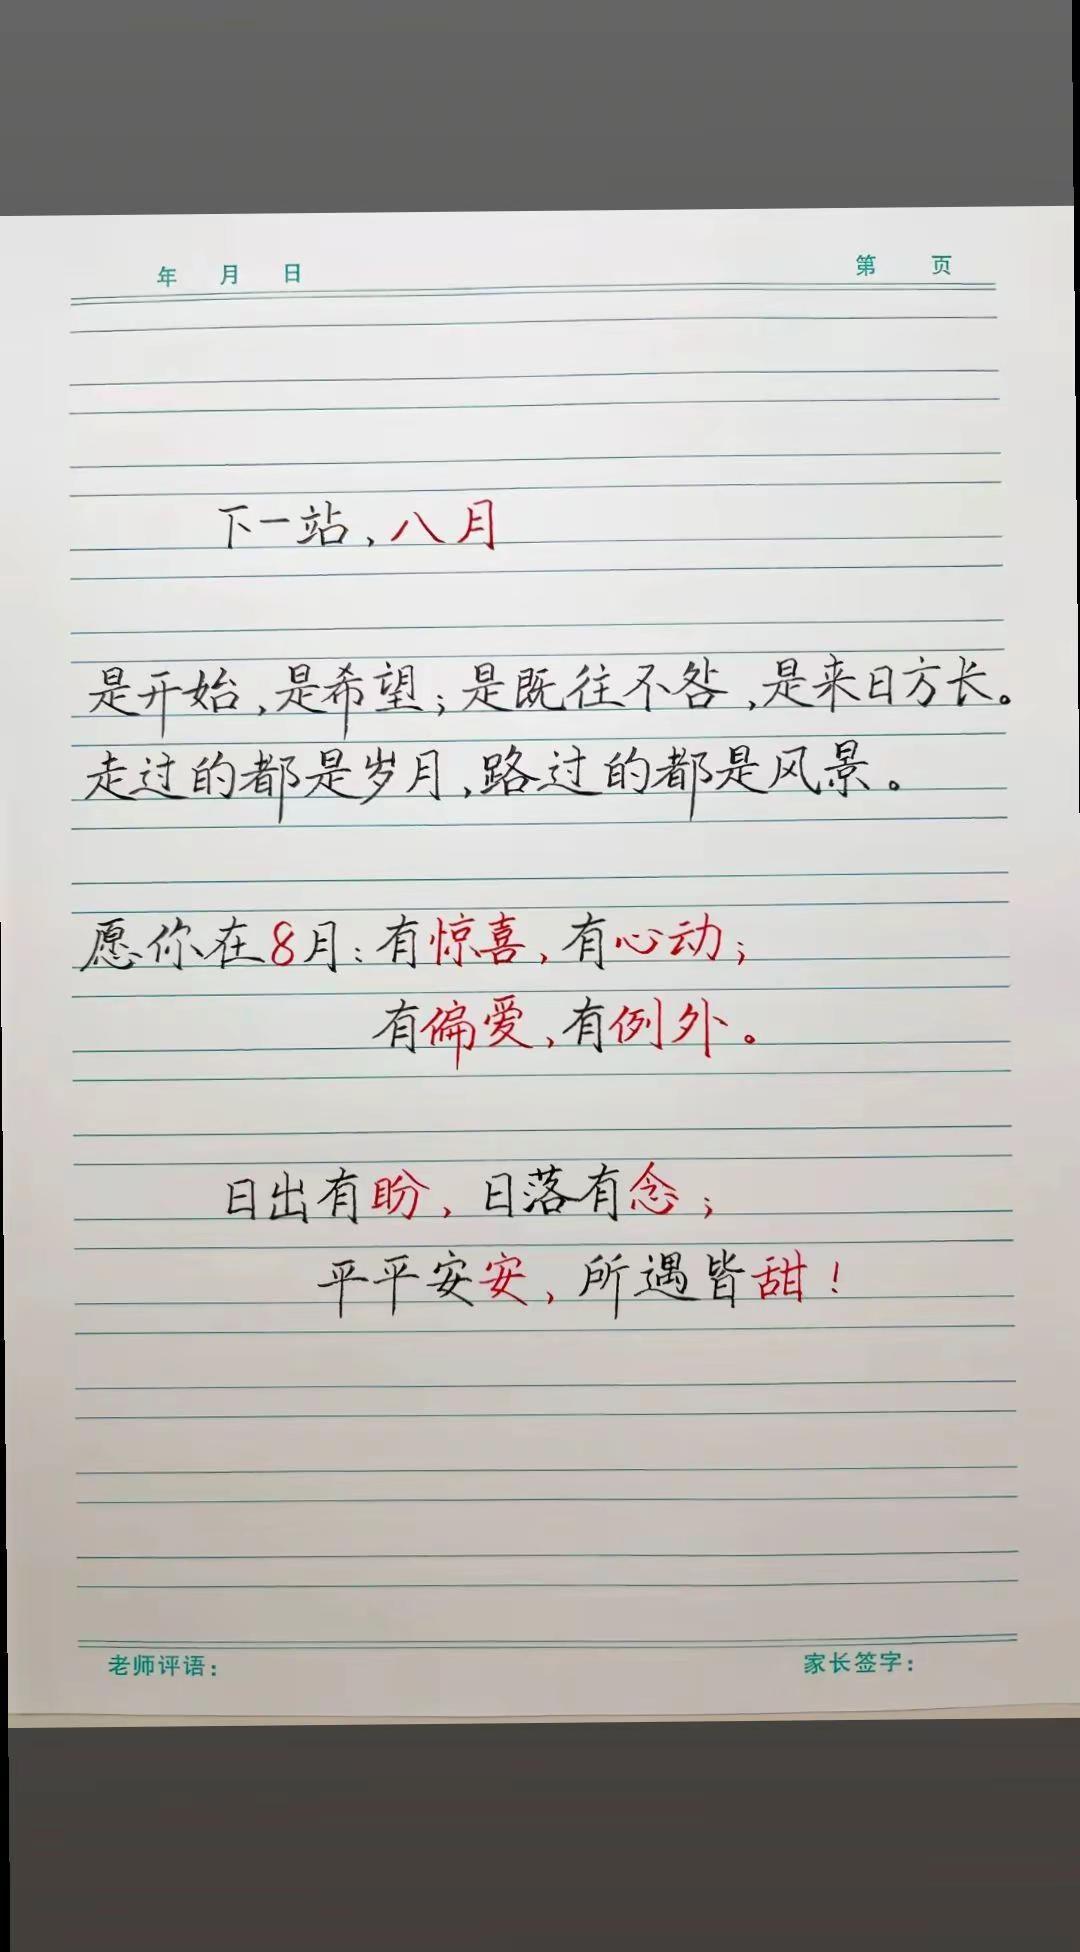 年 月 日 第 页
下一站,八月
是开始,是希望;是既往不咎,是来日方长。
走过的都是岁月,路过的都是风景。
愿你在8月:有惊喜,有心动;
有偏爱,有例外。
日出有盼,日落有念;
平平安安,所遇皆甜!
老师评语: 家长签字: